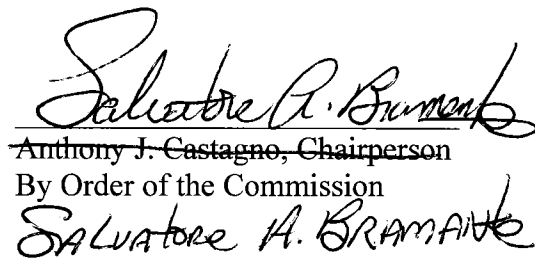 Salvatore A. Bramante
Anthony J. Castagno, Chairperson
By Order of the Commission
SALVATORE A. BRAMANTE